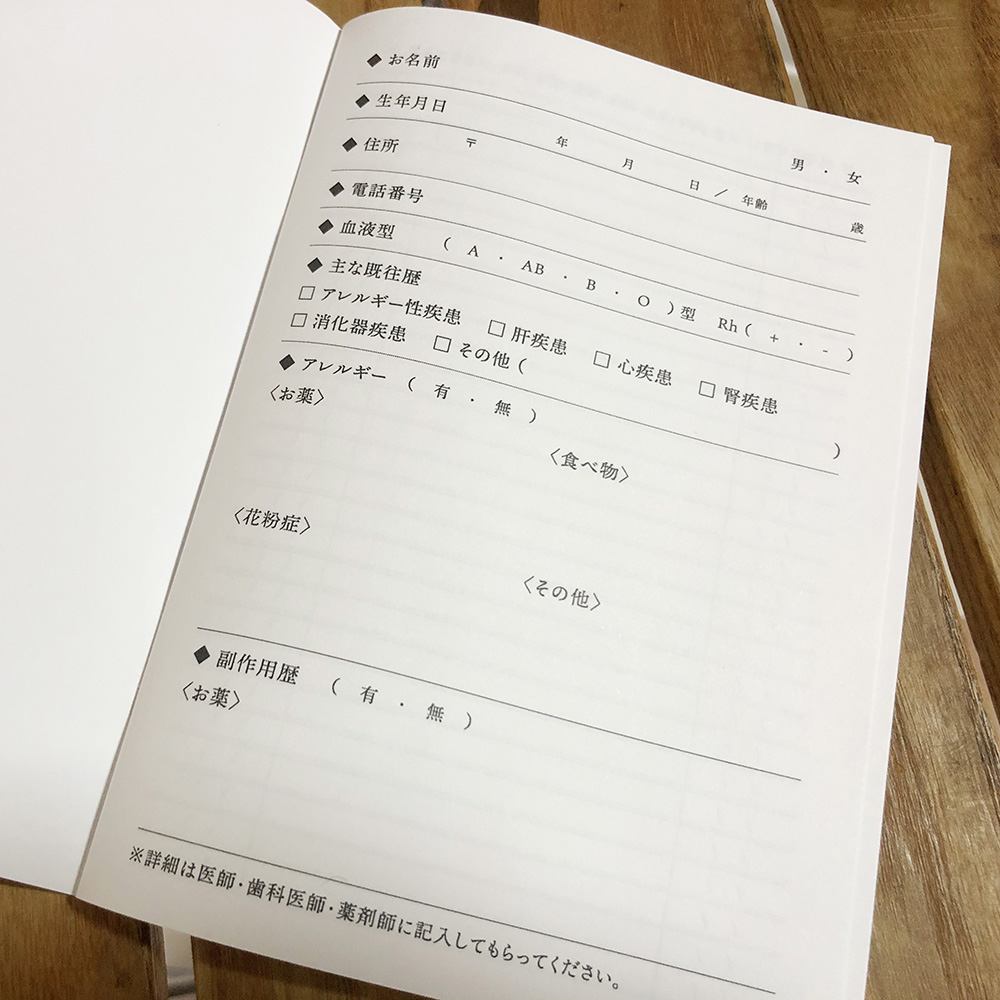 ◆ お名前 男 ・ 女
◆ 生年月日 年 月 日 ／ 年齢 歳
◆ 住所 〒
◆ 電話番号
◆ 血液型 ( A ・ AB ・ B ・ O ) 型 Rh ( + ・ - )
◆ 主な既往歴
□ アレルギー性疾患 □ 肝疾患 □ 心疾患 □ 腎疾患
□ 消化器疾患 □ その他 ( )
◆ アレルギー ( 有 ・ 無 )
〈お薬〉 〈食べ物〉
〈花粉症〉 〈その他〉
◆ 副作用歴 ( 有 ・ 無 )
〈お薬〉
※詳細は医師・歯科医師・薬剤師に記入してもらってください。